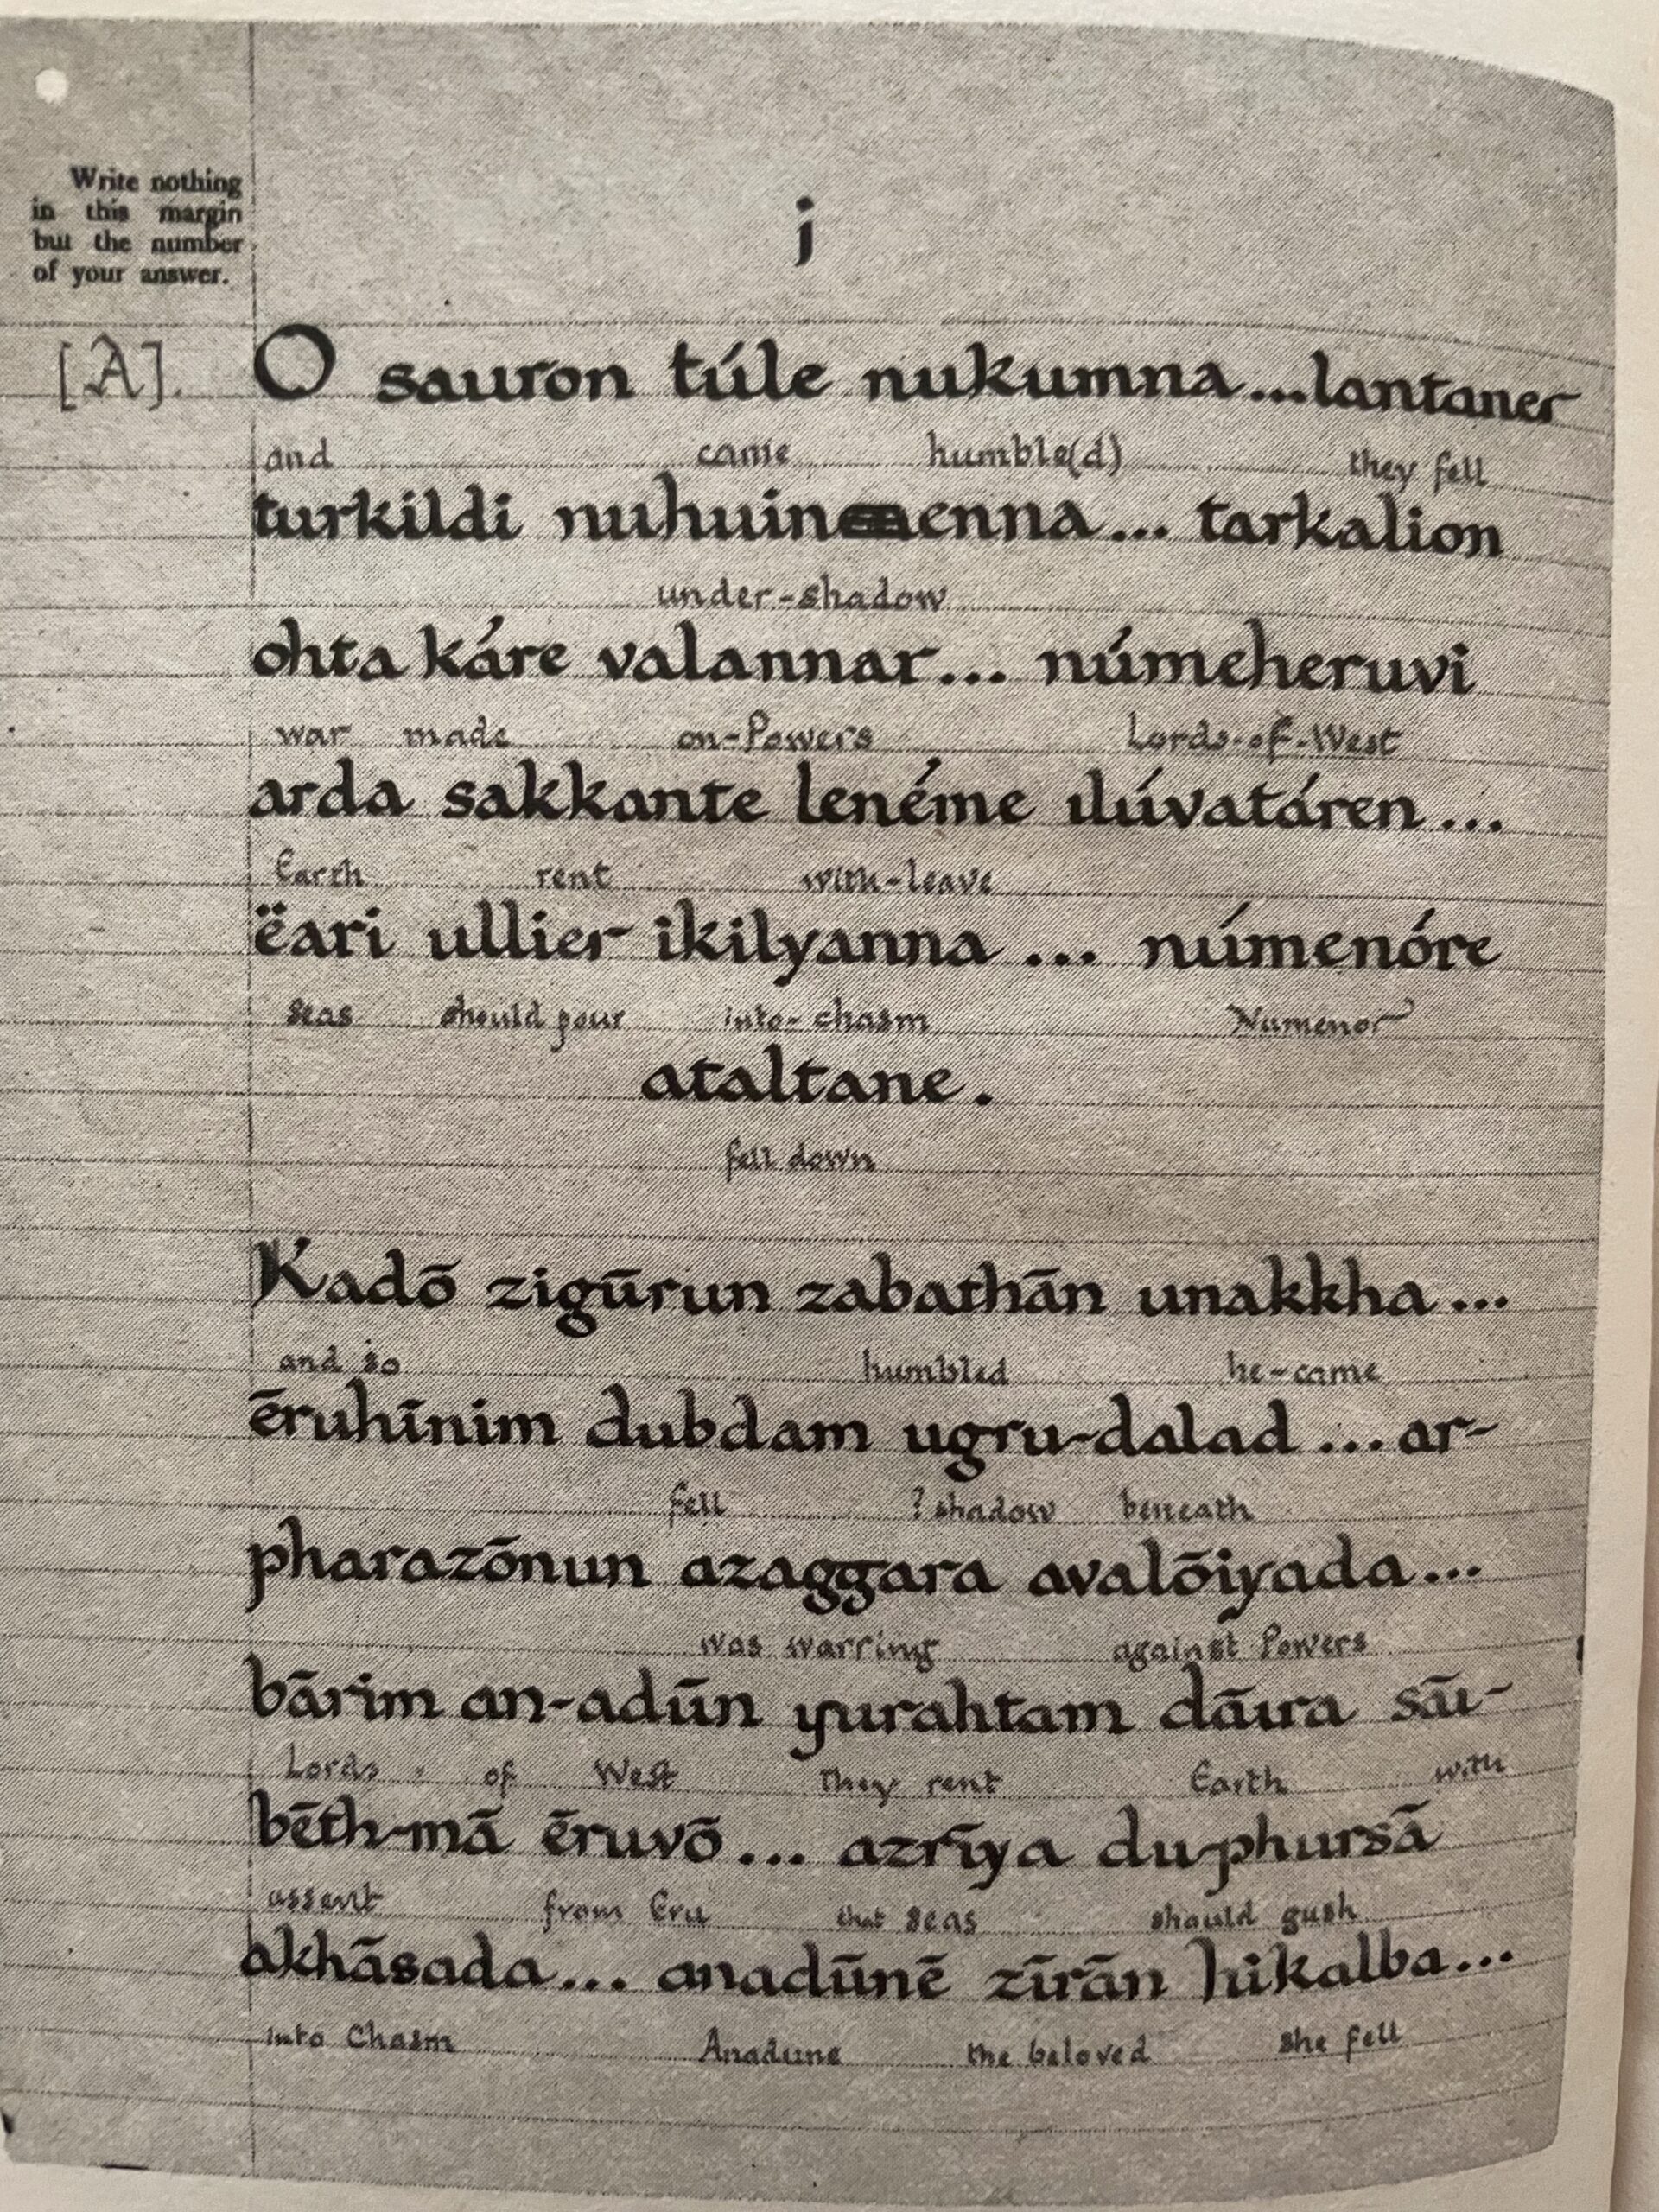 Write nothing
in this margin
but the number
of your answer.
j
[A]. O sauron túle nukumna...lantaner
and came humble(d) they fell
turkildi nuhuinenna... tarkalion
under-shadow
ohta káre valannar... númeheruvi
war made on-Powers Lords-of-West
arda sakkante lenéme ilúvatáren...
Earth rent with-leave
ëari ullier ikilyanna ... númenóre
seas should pour into-chasm Numenor
ataltane.
fell down
Kadō zigūrun zabathān unakkha...
and so humbled he-came
ēruhīnim dubdam ugru-dalad ... ar-
fell ? shadow beneath
pharazōnun azaggara avalōiyada...
was warring against Powers
bārim an-adūn yurahtam dāira sāi-
Lords of West they rent Earth with
bēth-mā ēruvō... azrīya du-phursā
assent from Eru that seas should gush
akhāsada... anadūnē zīrān hikalba...
into Chasm Anadune the beloved she fell